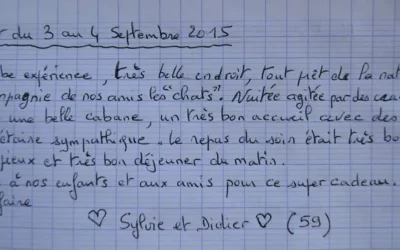 du 3 au 4 Septembre 2015
be expérience, très belle endroit, tout prêt de la nat
mpagnie de nos amis les "chats". Nuitée agitée par des
une belle cabane, un très bon accueil avec des
étaire sympathique. Le repus du soir était très bo
ieux et très bon déjeuner du matin.
à nos enfants et aux amis pour ce super cadeau.
faire
♡ Sylvie et Didier ♡ (59)